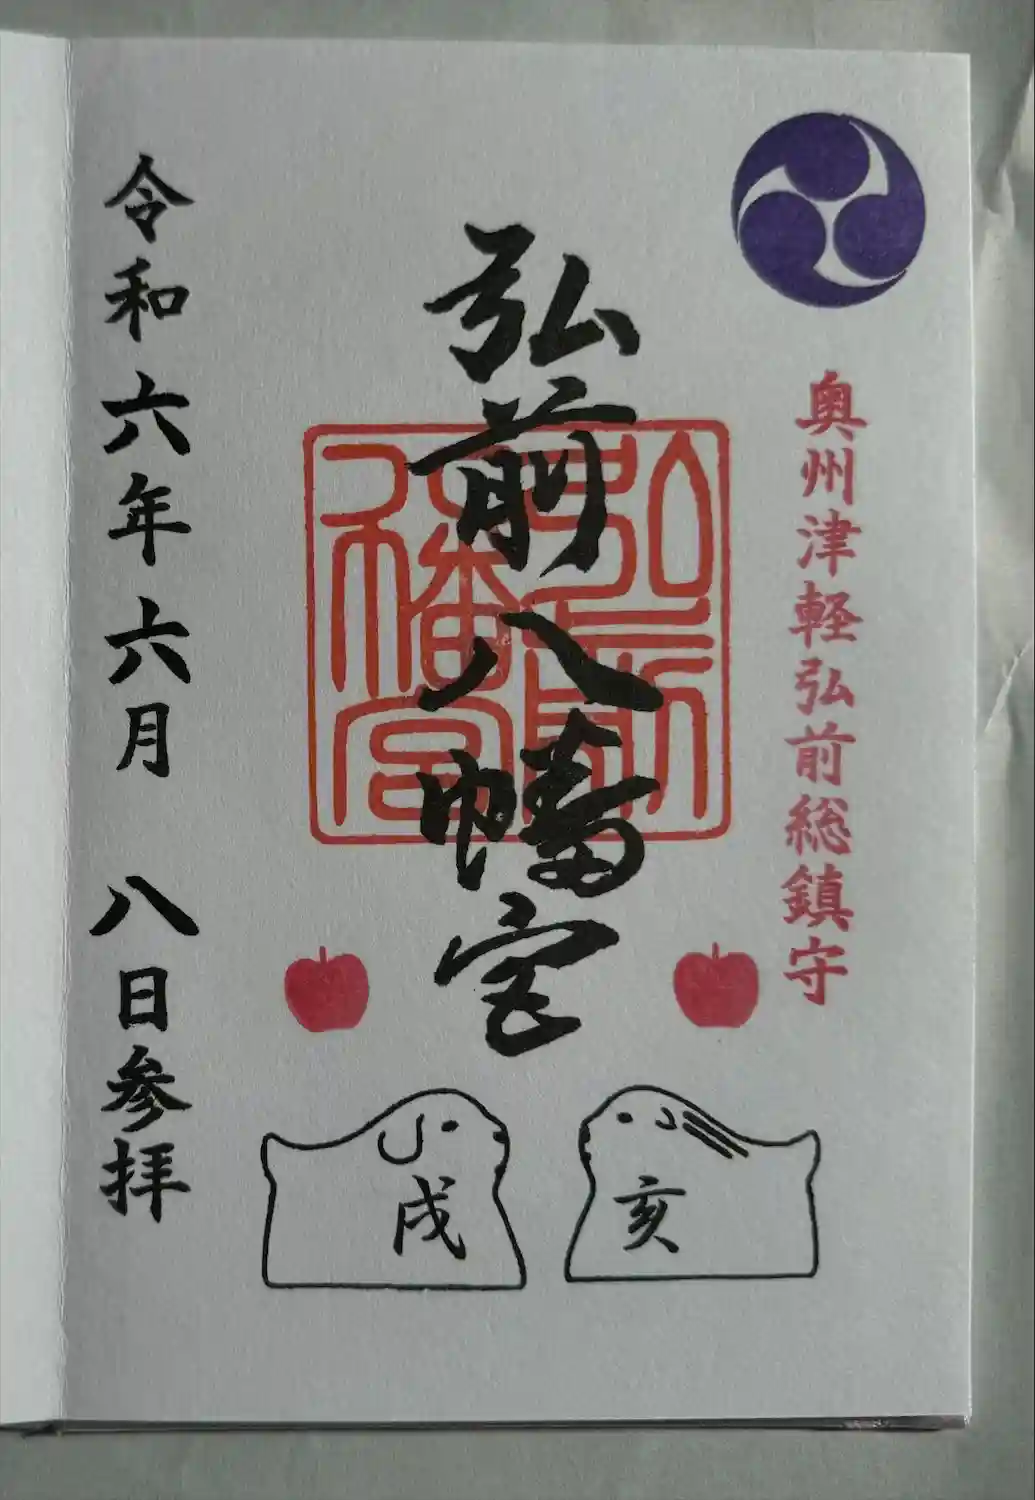 奥州津軽弘前総鎮守
弘前八幡宮
弘前八幡宮
令和六年六月 八日参拝
亥
戌